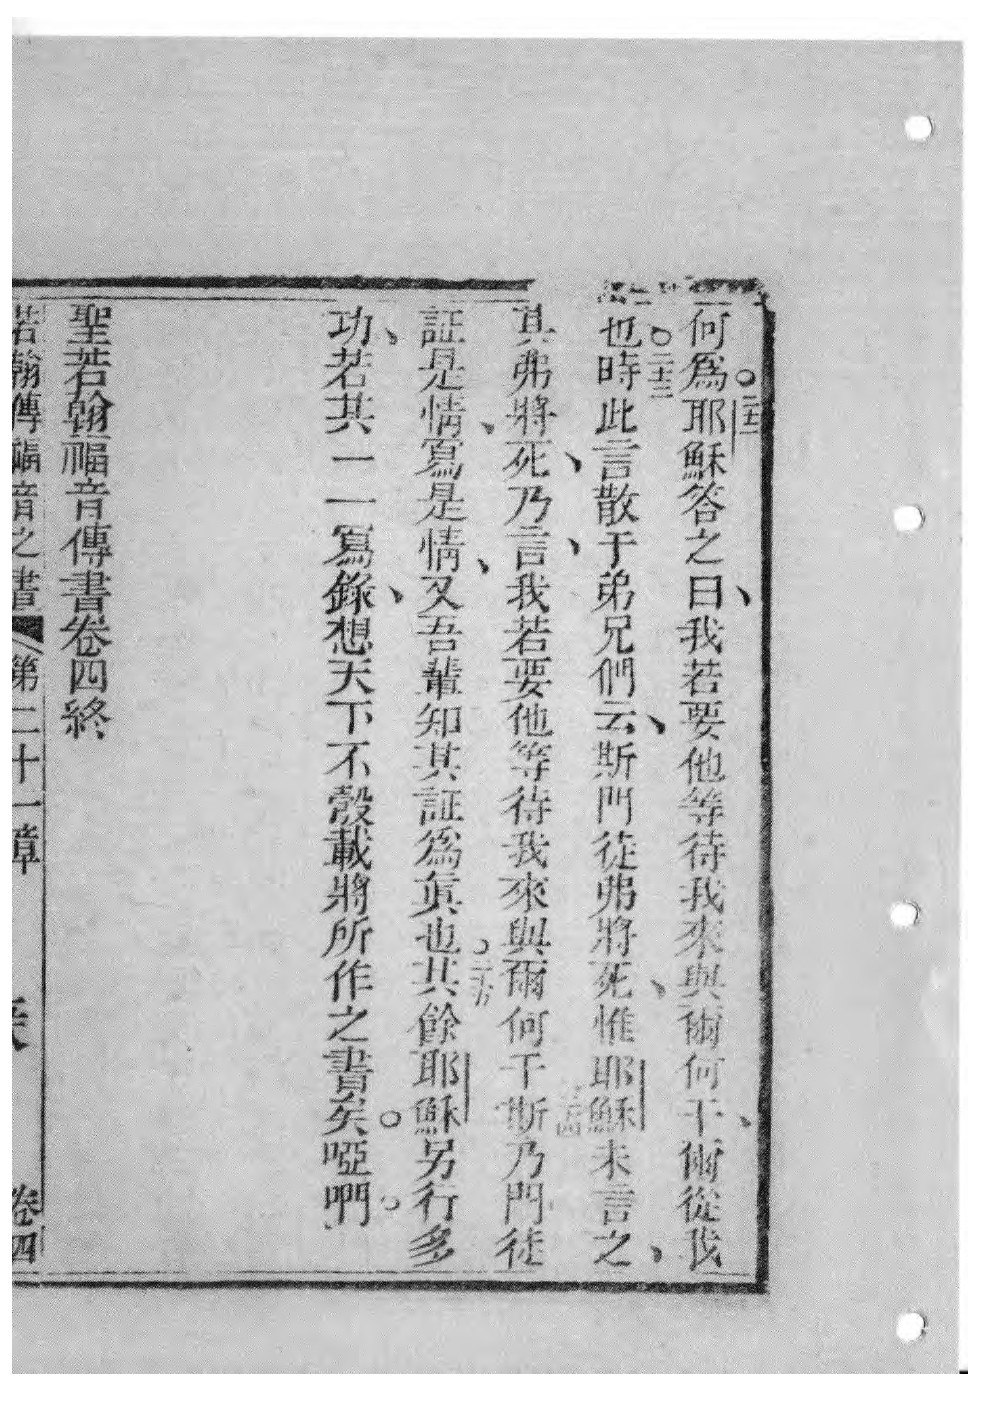 何為耶穌答之曰我若要他等待我來與爾何干爾從我
也時此言散于弟兄們云斯門徒弗將死惟耶穌未言之
其弗將死乃言我若要他等待我來與爾何干斯乃門徒
証是情寫是情又吾輩知其証為眞也其餘耶穌另行多
功若其一一寫錄想天下不彀載將所作之書矣啞們
聖若翰福音傳書卷四終
若翰傳福音之書 第二十一章 卷四